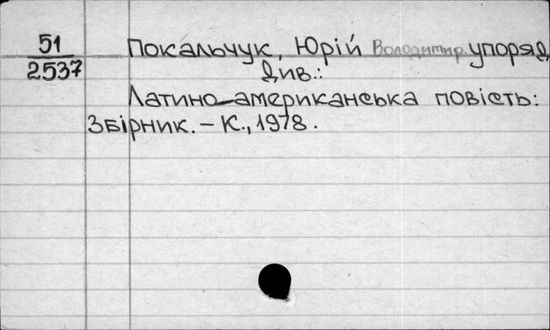 51
2537
Покальчук, Юрій Володимир. упоряд
Див.:
Латино-американська повість:
Збірник. – К., 1978.